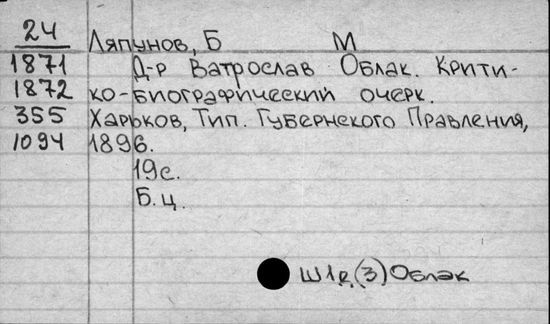 24 Ляпунов, Б М
1871 Д-р Ватрослав Облак. Крити-
1872 ко-биографический очерк.
355 Харьков, Тип. Губернского Правления,
1094 1896.
19с.
Б.ц.
Ш1д(3)Облак